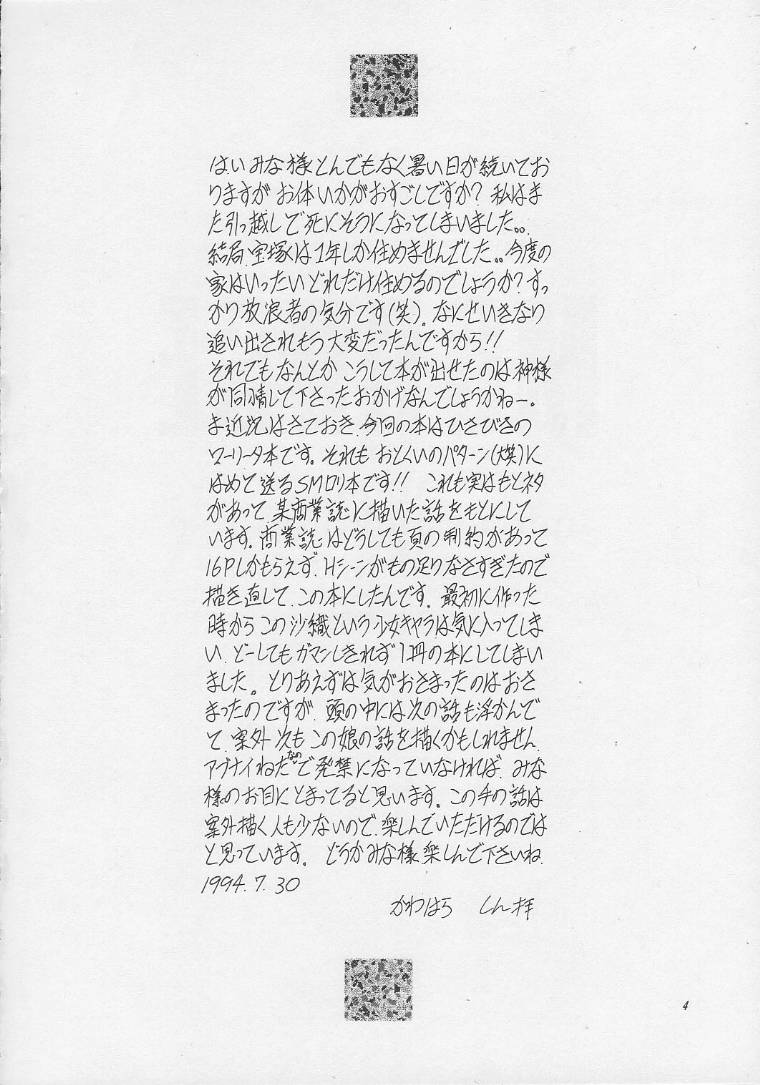 はい みな様 とんでもなく暑い日が続いてお
りますが お体いかがおすごしですか? 私はま
た引っ越しで死にそうになってしまいました。。
結局、宝塚は1年しか住めませんでした。。今度の
家はいったいどれだけ住めるのでしょうか?すっ
かり放浪者の気分です(笑)。なにせいきなり
追い出されもう大変だったんですから!!
それでもなんとか こうして本が出せたのは神様
が同情して下さったおかげなんでしょうかねー。
ま近況はさておき、今回の本はひさびさの
ローリータ本です。それも おとくいのパターン(大笑)に
はめて送るSMロリ本です!! これも実はもとネタ
があって 某商業誌に描いた話をもとにして
います。商業誌はどうしても頁の制約があって
16Pしかもらえず、Hシーンがもの足りなさすぎたので
描き直して、この本にしたんです。最初に作った
時からこの沙織という少女キャラは気に入ってしま
い、どーしてもガマンしきれず1冊の本にしてしまい
ました。とりあえずは気がおさまったのはおさ
まったのですが、頭の中には次の話も浮かんで
て、案外次もこの娘の話を描くかもしれません、
アブナイねたなので発禁になっていなければ、みな
様のお目にとまってると思います。この手の話は
案外描く人も少ないので、楽しんでいただけるのでは
と思っています。 どうかみな様楽しんで下さいね、
1994.7.30
かわはら しん拝
4